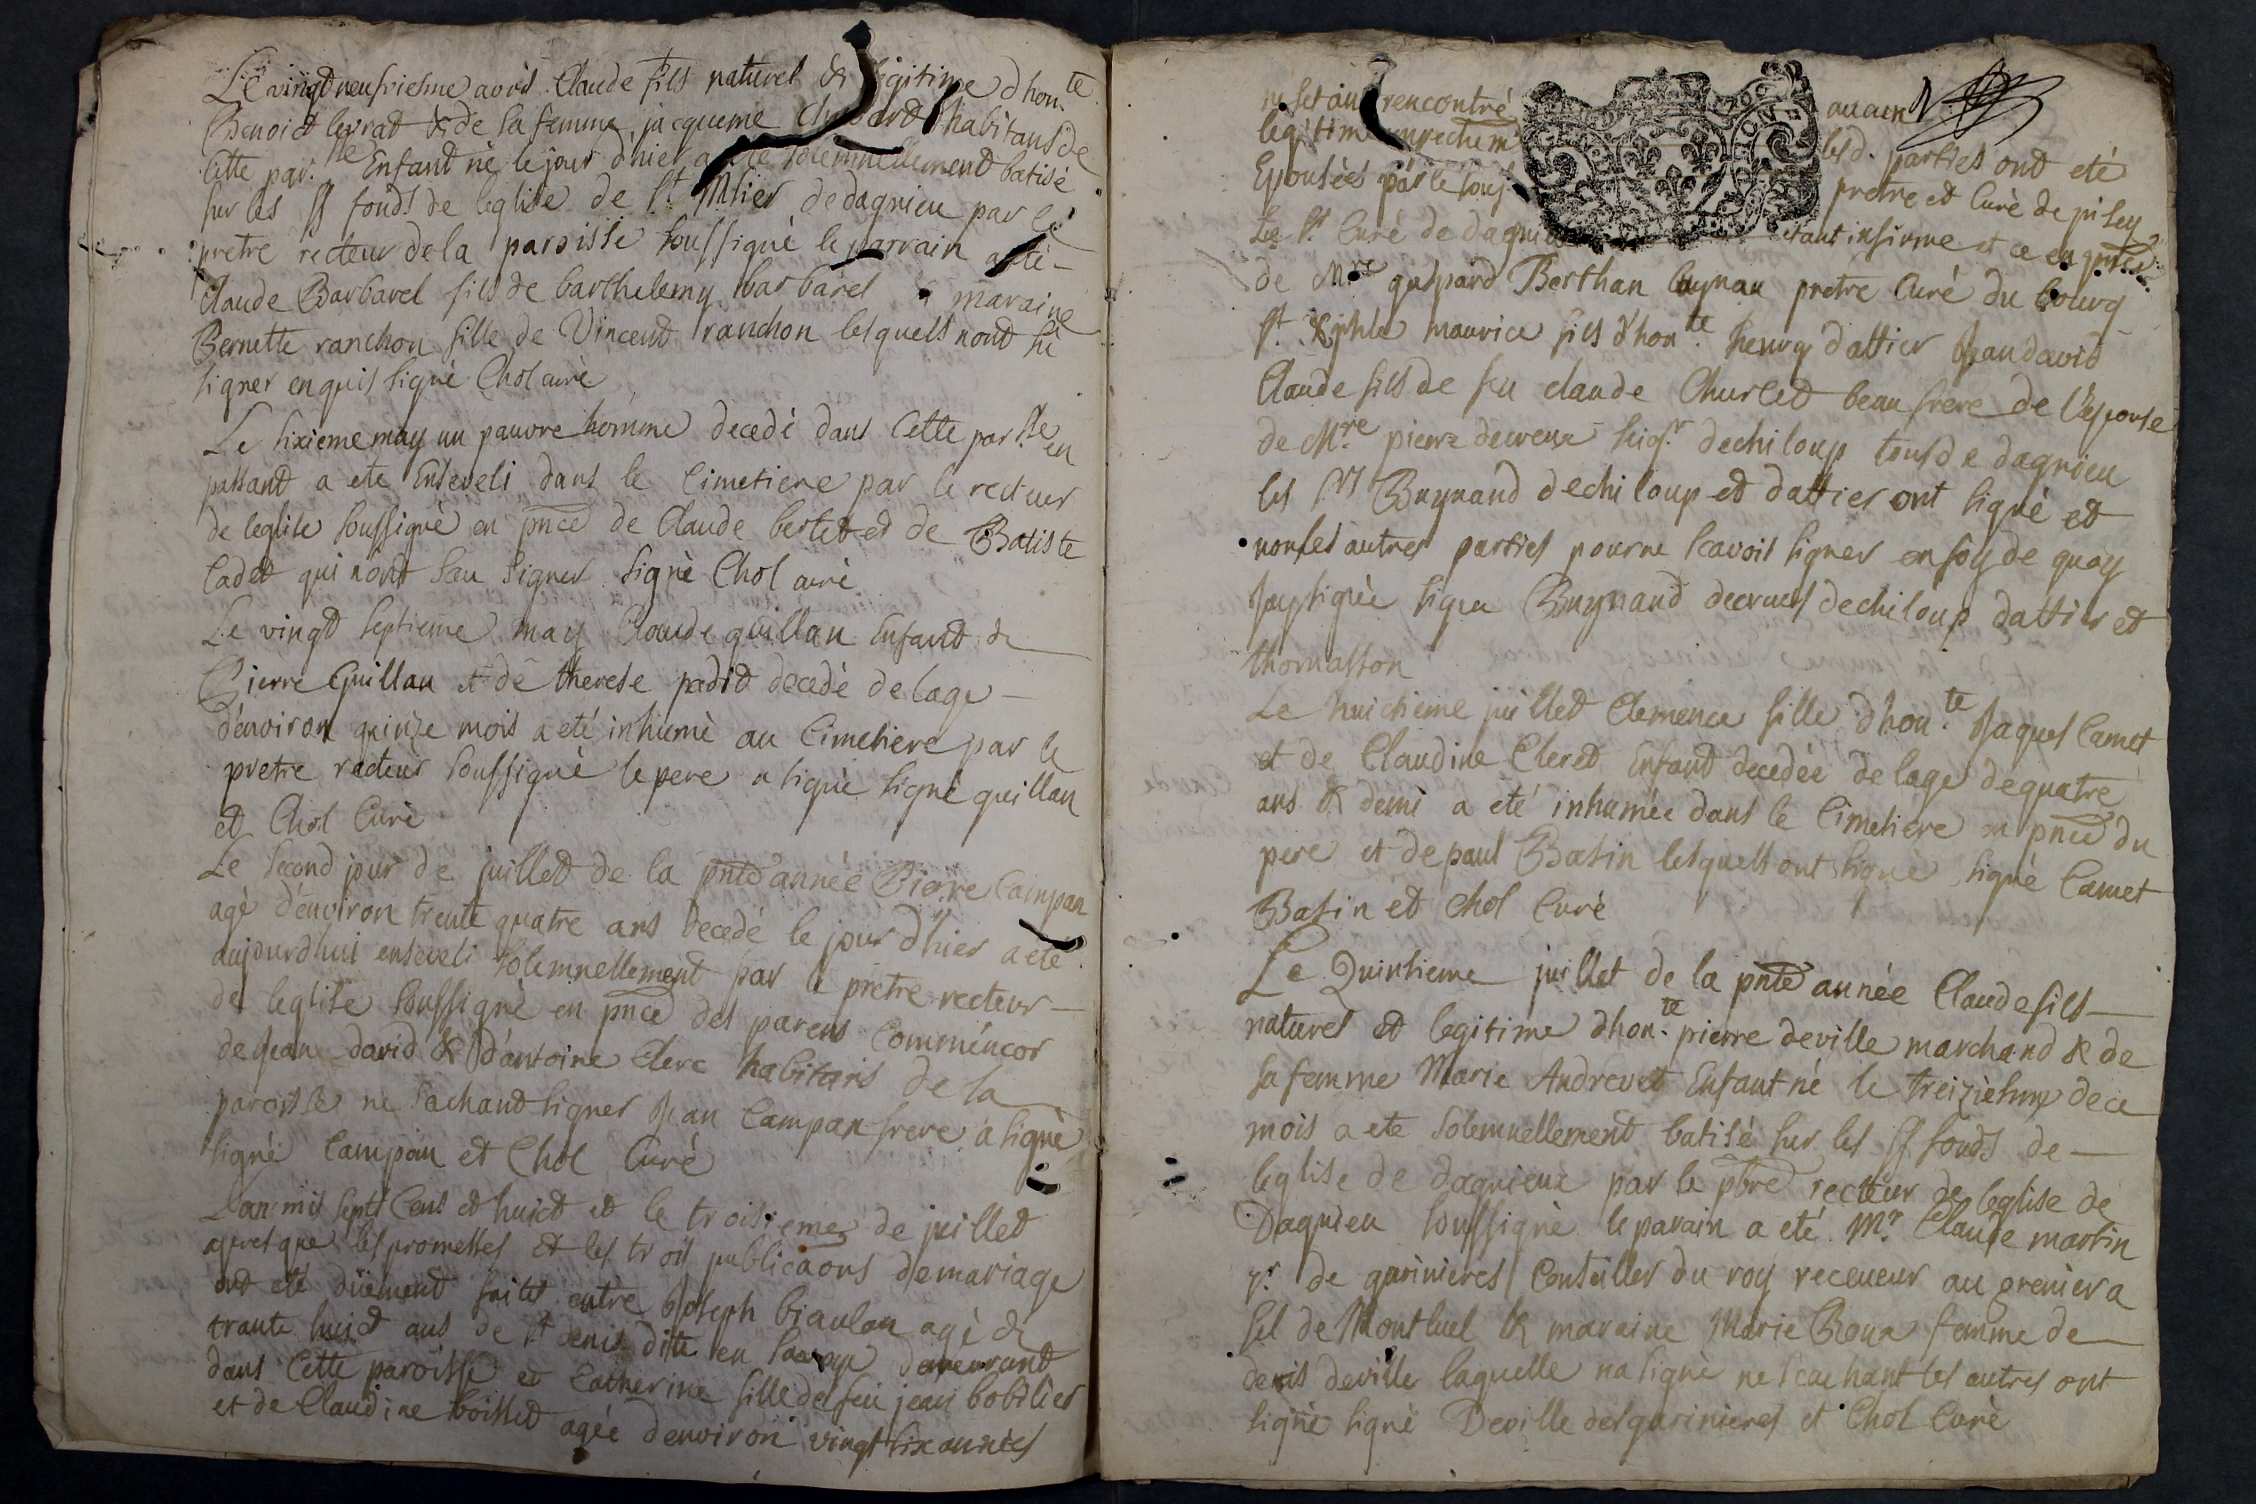 Le vingt neufviesme avril Claude fils naturel & legitime d hon.te
Benoict lerrat & de sa femme jacqueme habitans de
Cette par.sse Enfant né le jour d hier a été solemnellement batisé
sur les SS fonds de leglise de St dedagnieu par le
pretre recteur dela paroisse soussigné le parrain a eté
Claude Barbarel fils de barthelemy barbarel & maraine
Bernette ranchon fille de Vincent ranchon lesquels nont sû
signer enquis signé Chol curé
Le sixieme may un pauvre homme decedé dans Cette par.sse en
passant a ete Enseveli dans le Cimetiere par le recteur
de leglise soussigné en pnce de Claude bertet et de Batiste
Cadet qui nont sau signer signé Chol curé
Le vingt septieme may Claude guillan Enfant de
Pierre Guillan et de therese padit decedé de lage
d'environ quinze mois a eté inhumé au Cimetiere par le
pretre recteur soussigné le pere a signé signé guillan
et Chol Curé
Le second jour de juillet de la pnte année Pierre Campan
agé d'environ trente quatre ans decedé le jour d'hier a eté
aujourdhui enseveli solemnellement par le pretre recteur
de leglise soussigné en pnce des parens Comméncor
de Jean david & d'antoine Clerc habitans de la
paroisse ne sachant signer Jean Campan frere a signé
signé Campan et Chol Curé
L'an mil sept Cens et huict et le troisieme de juillet
apres que les promesses et les trois publicaons demariage
ont eté düement faites entre Joseph biaulan agé de
trante huict ans de St denis dite en savoye demeurant
dans Cette paroisse et Catherine fille de feu jean bobilier
et de Claudine boisset agée d'environ vingt six années
ne set au rencontré aucun
legitime empechem lesd. parties ont eté
Epousées par le sous pretre et Curé de pisey
Le Sr Curé de dagnieu etant infirme et ce en pnce
de Mre gaspard Berthan pretre Curé du bourg
St Xphle maurice fils d'hon.te henry dattier Jean david
Claude fils de feu claude Churlet beau frere de l'espouse
de Mre pierre decreux seigr dechiloup tous de dagnieu
les Srs Buynand dechiloup et dattier ont signé et
non les autres parties pour ne scavoir signer en foy de quoy
jay signée signé Buynand decreux dechiloup dattier et
thomasson
Le huictieme juillet Clemence fille d'hon.te Jaques Camet
et de Claudine Cleret Enfant decedée de lage de quatre
ans & demi a eté inhumée dans le Cimetiere en pnce du
pere et de paul Basin lesquels ont signé signé Camet
Basin et Chol Curé
Le Quinsieme juillet de la pnte année Claude fils
naturel et legitime dhon.te pierre deville marchand & de
sa femme Marie Andrevet Enfant né le treiziesme de ce
mois a ete solemnellement batisé sur les SS fonds de
leglise de dagnieux par le pbre recteur de leglise de
Dagnieu soussigné le parain a eté Mr Claude martin
Sr de garinieres Conseiller du roy receveur au grenier a
sel de Montluel & maraine Marie Roux femme de
denis deville laquelle na signé ne scachant les autres ont
signé signé Deville des garinieres et Chol Curé